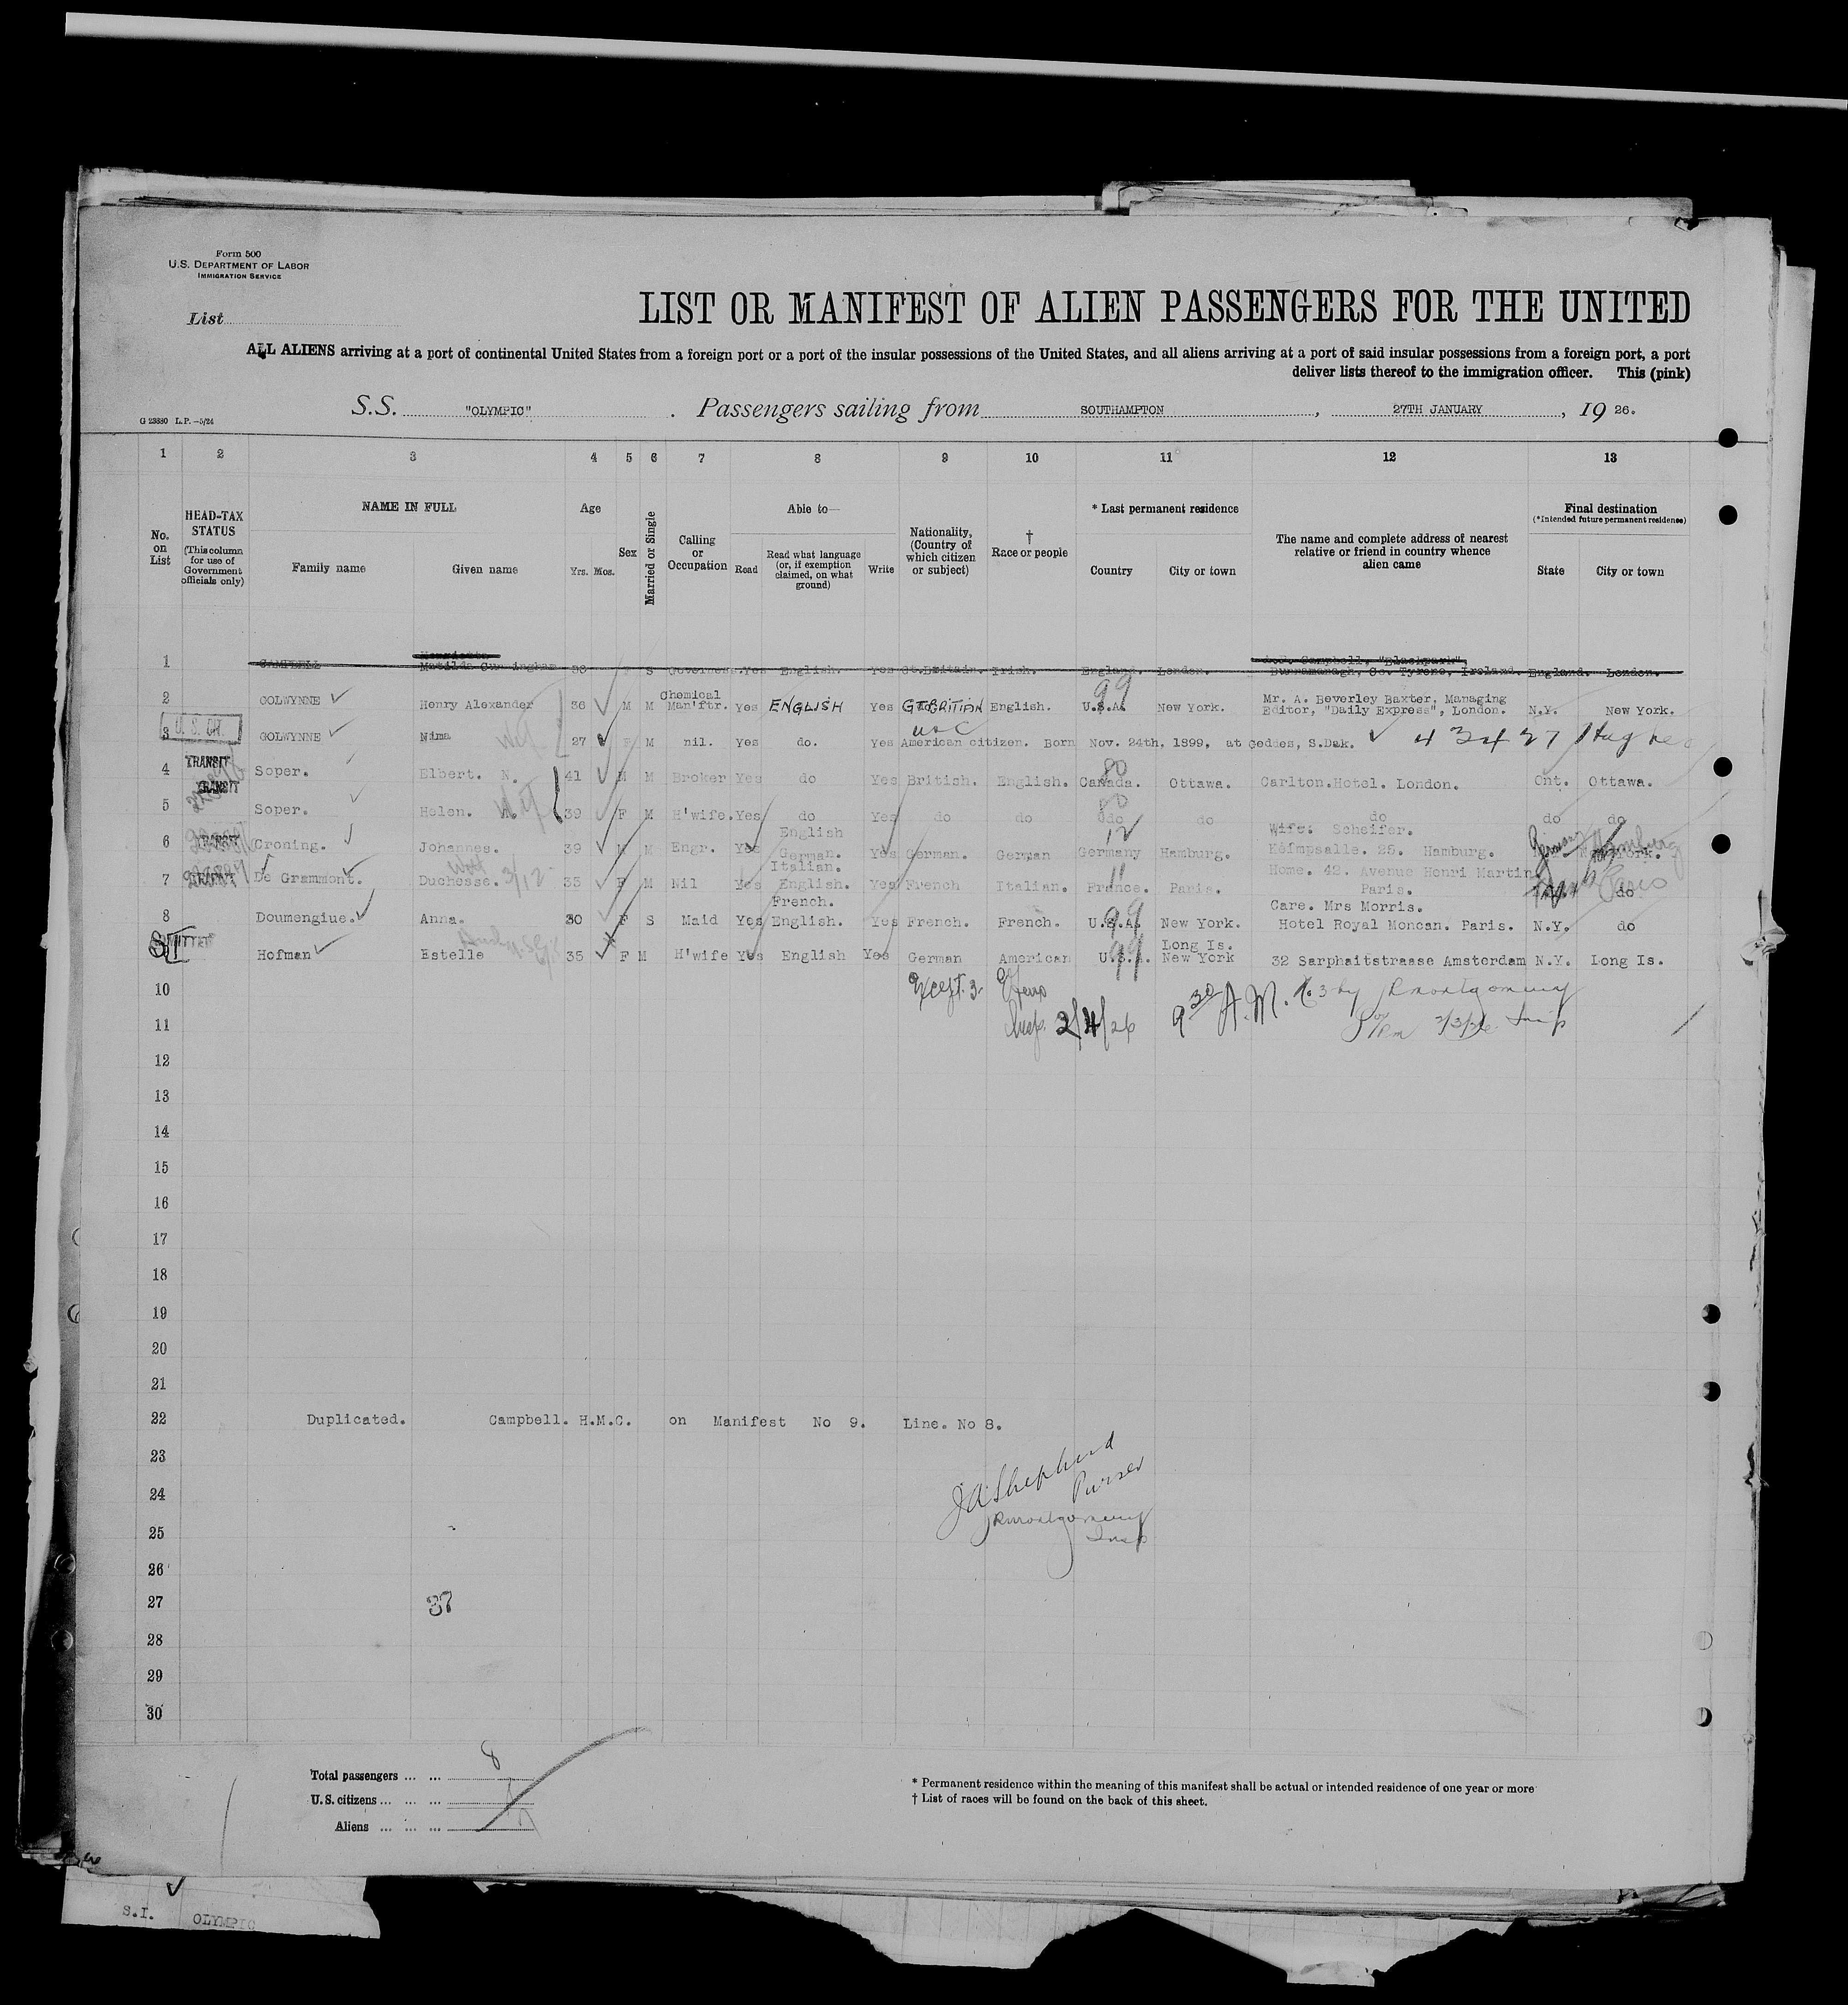 Form 500
U.S. DEPARTMENT OF LABOR
IMMIGRATION SERVICE
List
LIST OR MANIFEST OF ALIEN PASSENGERS FOR THE UNITED
ALL ALIENS arriving at a port of continental United States from a foreign port or a port of the insular possessions of the United States, and all aliens arriving at a port of said insular possessions from a foreign port, a port
deliver lists thereof to the immigration officer. This (pink)
S.S. "OLYMPIC" . Passengers sailing from SOUTHAMPTON , 27TH JANUARY , 19 26.
G 23880 L.P.-5/24
1 2 3 4 5 6 7 8 9 10 11 12 13
No. on List
HEAD-TAX STATUS (This column for use of Government officials only)
NAME IN FULL
Family name Given name
Age
Yrs. Mos.
Sex
Married or Single
Calling or Occupation
Able to—
Read
Read what language (or, if exemption claimed, on what ground)
Write
Nationality, (Country of which citizen or subject)
† Race or people
* Last permanent residence
Country City or town
The name and complete address of nearest relative or friend in country whence alien came
Final destination
(*Intended future permanent residence)
State City or town
1 CAMPBELL Henrietta Matilda Cunningham 38 F S Governess. Yes English. Yes Gt.Britain. Irish. England. London. Campbell, "Blackpark" Co. Tyrone, Ireland. England. London.
2 GOLWYNNE Henry Alexander 36 M M Chemical Man'ftr. Yes ENGLISH Yes GT BRITIAN English. U.S.A. 99 New York. Mr. A. Beverley Baxter, Managing Editor, "Daily Express", London. N.Y. New York.
U.S.
3 GOLWYNNE Nima 27 F M nil. Yes do. Yes USC American citizen. Born Nov. 24th, 1899, at Geddes, S.Dak. 43427
TRANSIT
4 Soper. Elbert. N. 41 M M Broker Yes do Yes British. English. Canada. 80 Ottawa. Carlton.Hotel. London. Ont. Ottawa.
TRANSIT
5 Soper. Helen. 39 F M H'wife. Yes do Yes do do do 80 do do do do
TRANSIT
6 Groning. Johannes. 39 M M Engr. Yes English German. Yes German. German Germany 12 Hamburg. Wife. Scheifer. 25. Hamburg. Germany Hamburg York.
TRANSIT
7 De Grammont. Duchesse. 3/12 35 F M Nil Yes Italian. English. French. Yes French Italian. France. 11 Paris. Home. 42. Avenue Henri Martin. Paris. Paris do
8 Doumengiue. Anna. 30 F S Maid Yes English. Yes French. French. U.S.A. 99 New York. Care. Mrs Morris. Hotel Royal Moncan. Paris. N.Y. do
9 Hofman Estelle 35 F M H'wife Yes English Yes German American U.S.A. 99 Long Is. New York 32 Sarphaitstraase Amsterdam N.Y. Long Is.
10 Except. 3
11 Insp. 2/4/26 9 30 A.M. No 3 by Montgomery
Insp
12
13
14
15
16
17
18
19
20
21
22 Duplicated. Campbell. H.M.C. on Manifest No 9. Line. No 8.
23
J A Shepherd
24 Purser
25 Montgomery
Insp
26
27 37
28
29
30
Total passengers ... ... 8
U.S. citizens ... ... ...
Aliens ... ... ...
* Permanent residence within the meaning of this manifest shall be actual or intended residence of one year or more
† List of races will be found on the back of this sheet.
S.I. OLYMPIC